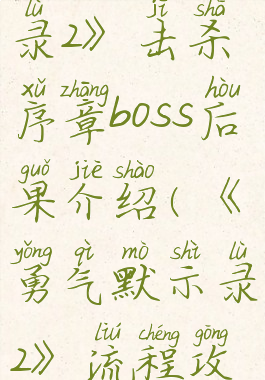 lù jī shā
录2》 击杀
xǔ zhāng hòu
序章boss后
guǒ jiè shào
果介绍(《
yǒng qì mò shì lù
勇气默示录
liú chéng gōng
2》 流程攻